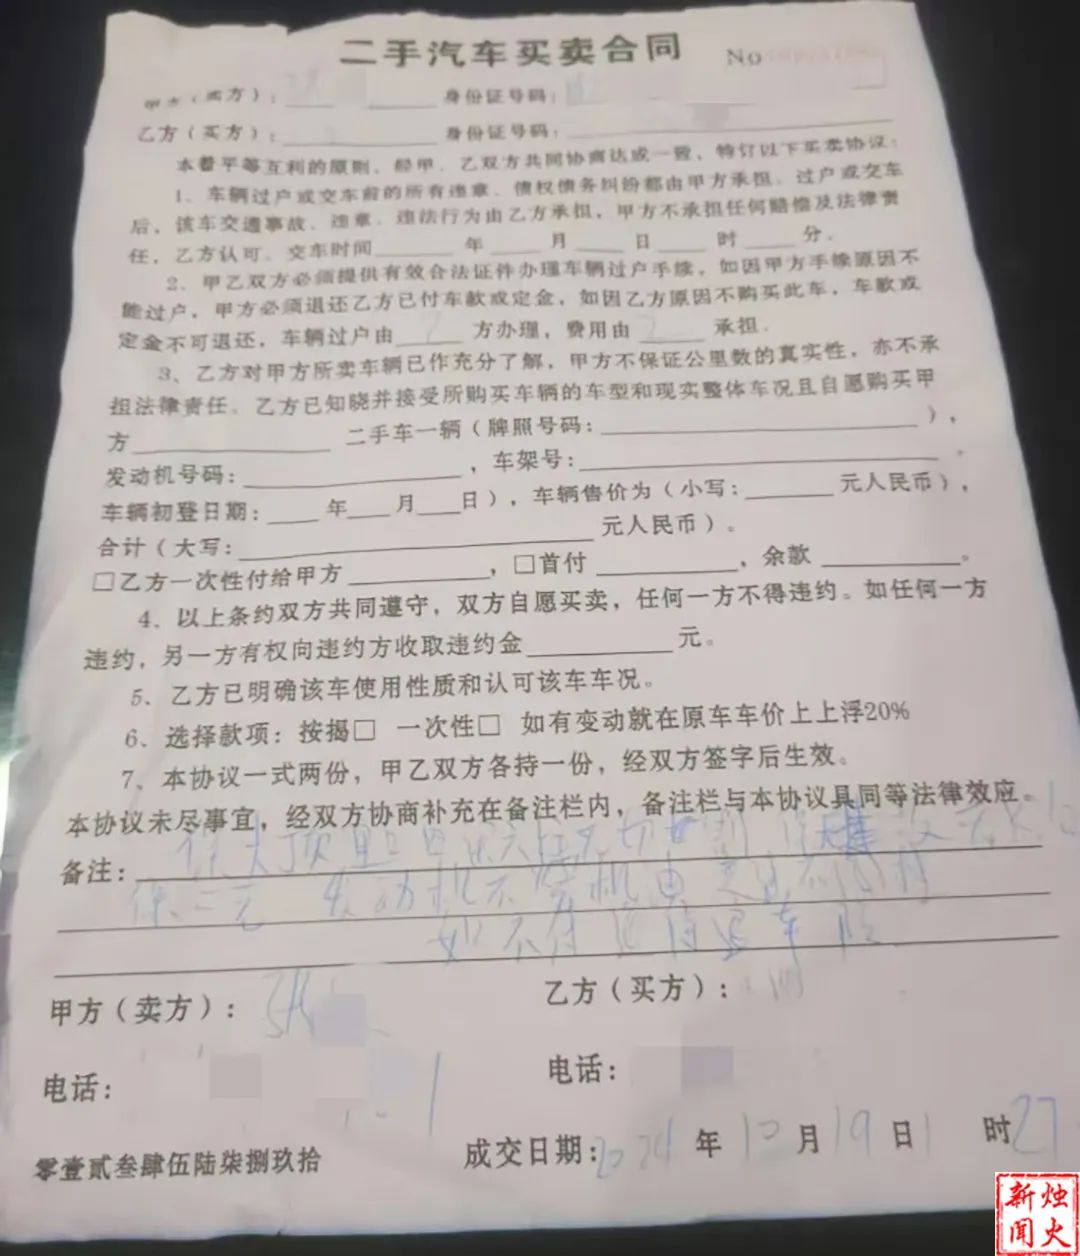 二手汽车买卖合同 No
甲方（卖方）： 身份证号码：
乙方（买方）： 身份证号码：
本着平等互利的原则，经甲、乙双方共同协商达成一致，特订以下买卖协议：
1、车辆过户或交车前的所有违章、债权债务纠纷都由甲方承担，过户或交车
后，该车交通事故、违章、违法行为由乙方承担，甲方不承担任何赔偿及法律责
任，乙方认可。交车时间 年 月 日 时 分。
2、甲乙双方必须提供有效合法证件办理车辆过户手续，如因甲方手续原因不
能过户，甲方必须退还乙方已付车款或定金，如因乙方原因不购买此车，车款或
定金不可退还，车辆过户由 方办理，费用由 承担。
3、乙方对甲方所卖车辆已作充分了解，甲方不保证公里数的真实性，亦不承
担法律责任。乙方已知晓并接受所购买车辆的车型和现实整体车况且自愿购买甲
方 二手车一辆（牌照号码： ），
发动机号码： ，车架号： ，
车辆初登日期： 年 月 日），车辆售价为（小写： 元人民币），
合计（大写： 元人民币）。
□乙方一次性付给甲方 ，□首付 ，余款 。
4、以上条约双方共同遵守，双方自愿买卖，任何一方不得违约。如任何一方
违约，另一方有权向违约方收取违约金 元。
5、乙方已明确该车使用性质和认可该车车况。
6、选择款项：按揭□ 一次性□ 如有变动就在原车车价上上浮20%
7、本协议一式两份，甲乙双方各持一份，经双方签字后生效。
本协议未尽事宜，经双方协商补充在备注栏内，备注栏与本协议具同等法律效应。
备注：
发动机不烧机油
如不符 车
甲方（卖方）： 乙方（买方）：
电话： 电话：
零壹贰叁肆伍陆柒捌玖拾 成交日期：2024年10月19日1时27
新烛
闻火